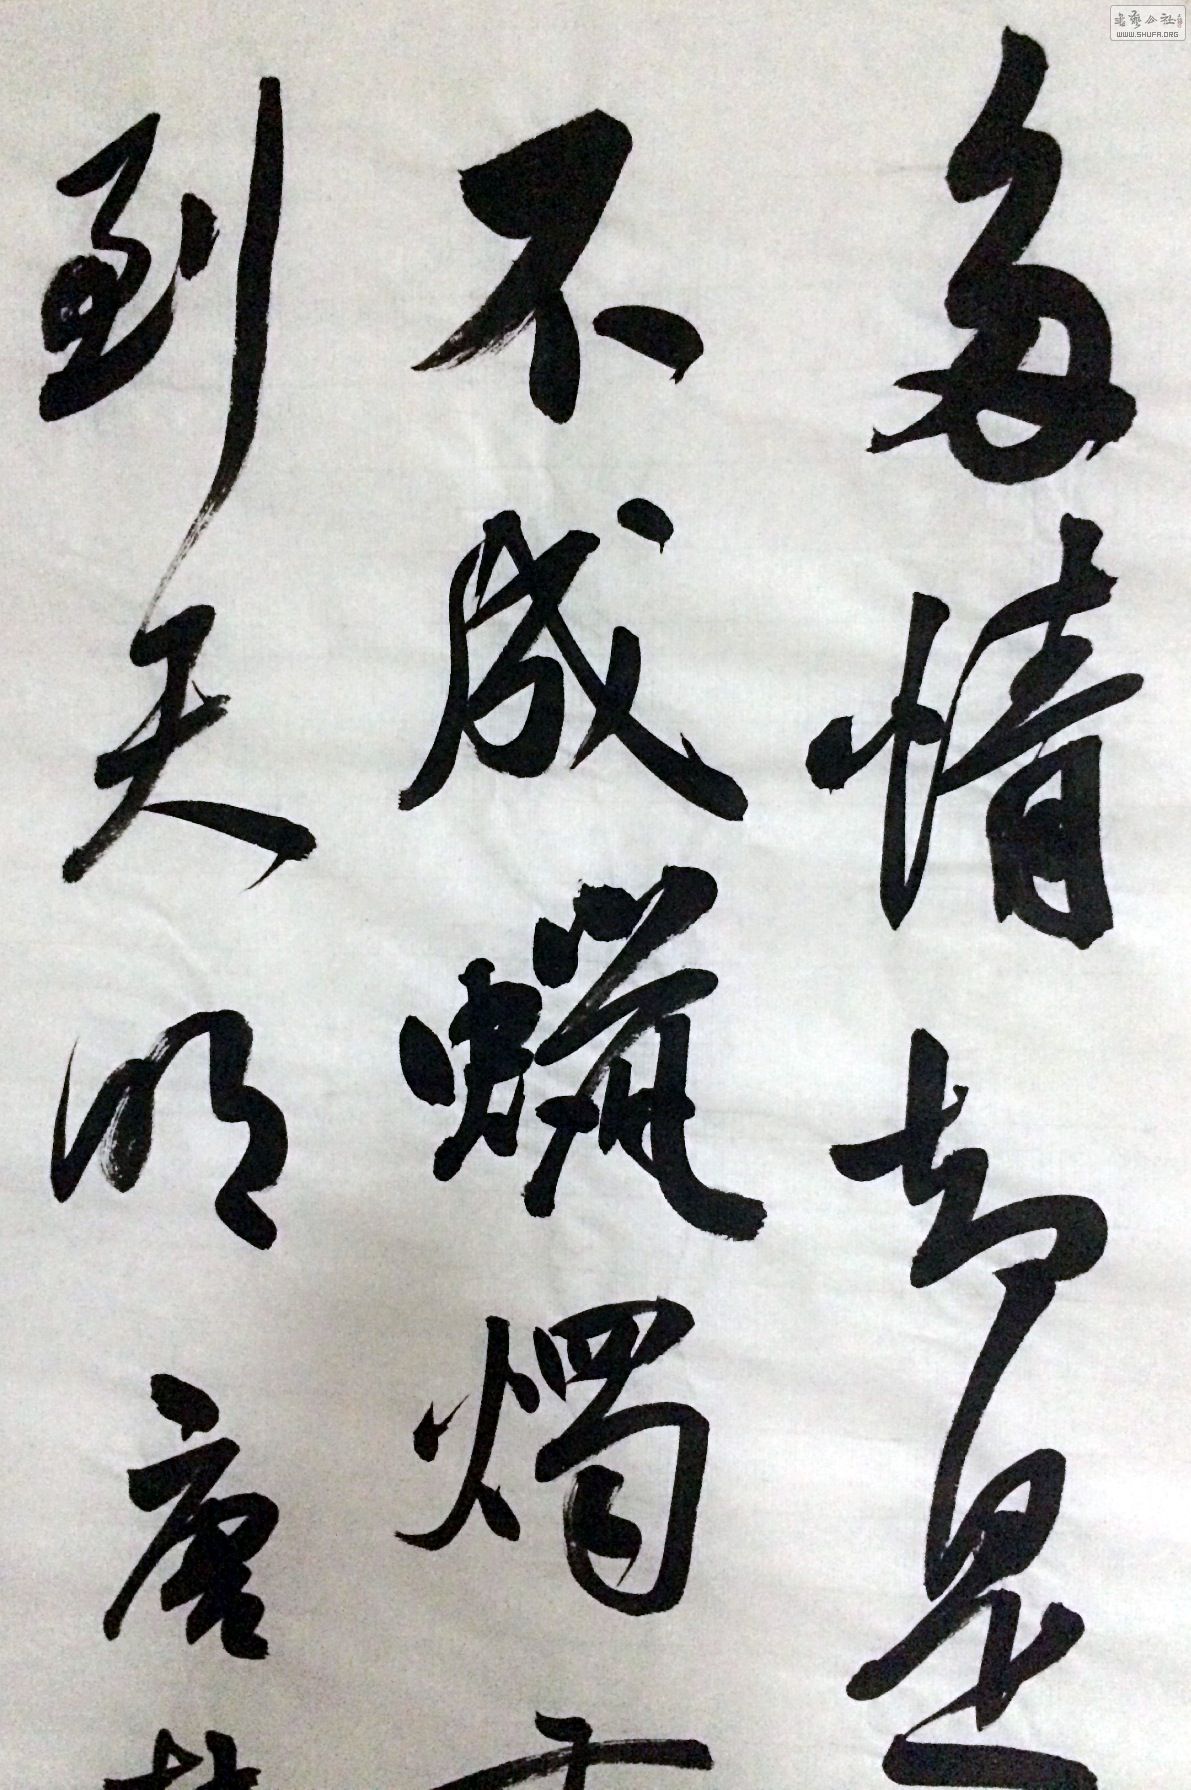 多情却是
不成蜡烛
到天明唐杜
书艺公社
WWW.SHUFA.ORG